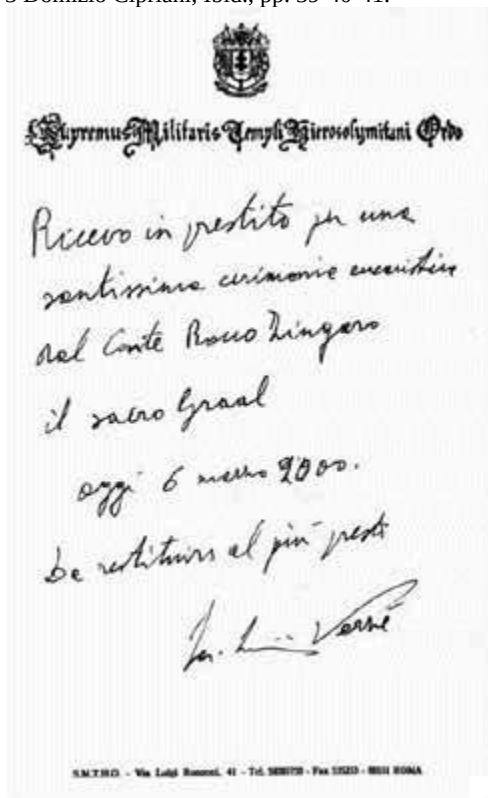 3 Domizio Cipriani, Ibid., pp. 39-40-41.
Supremus Militaris Templi Hierosolymitani Ordo
Ricevo in prestito per una
santissima cerimonia eucaristica
dal Conte Rocco Zingaro
il sacro Graal
oggi 6 marzo 2000.
Da restituirsi al più presto
S.M.T.H.O. - Via Luigi 41 - Tel. - Fax - ROMA